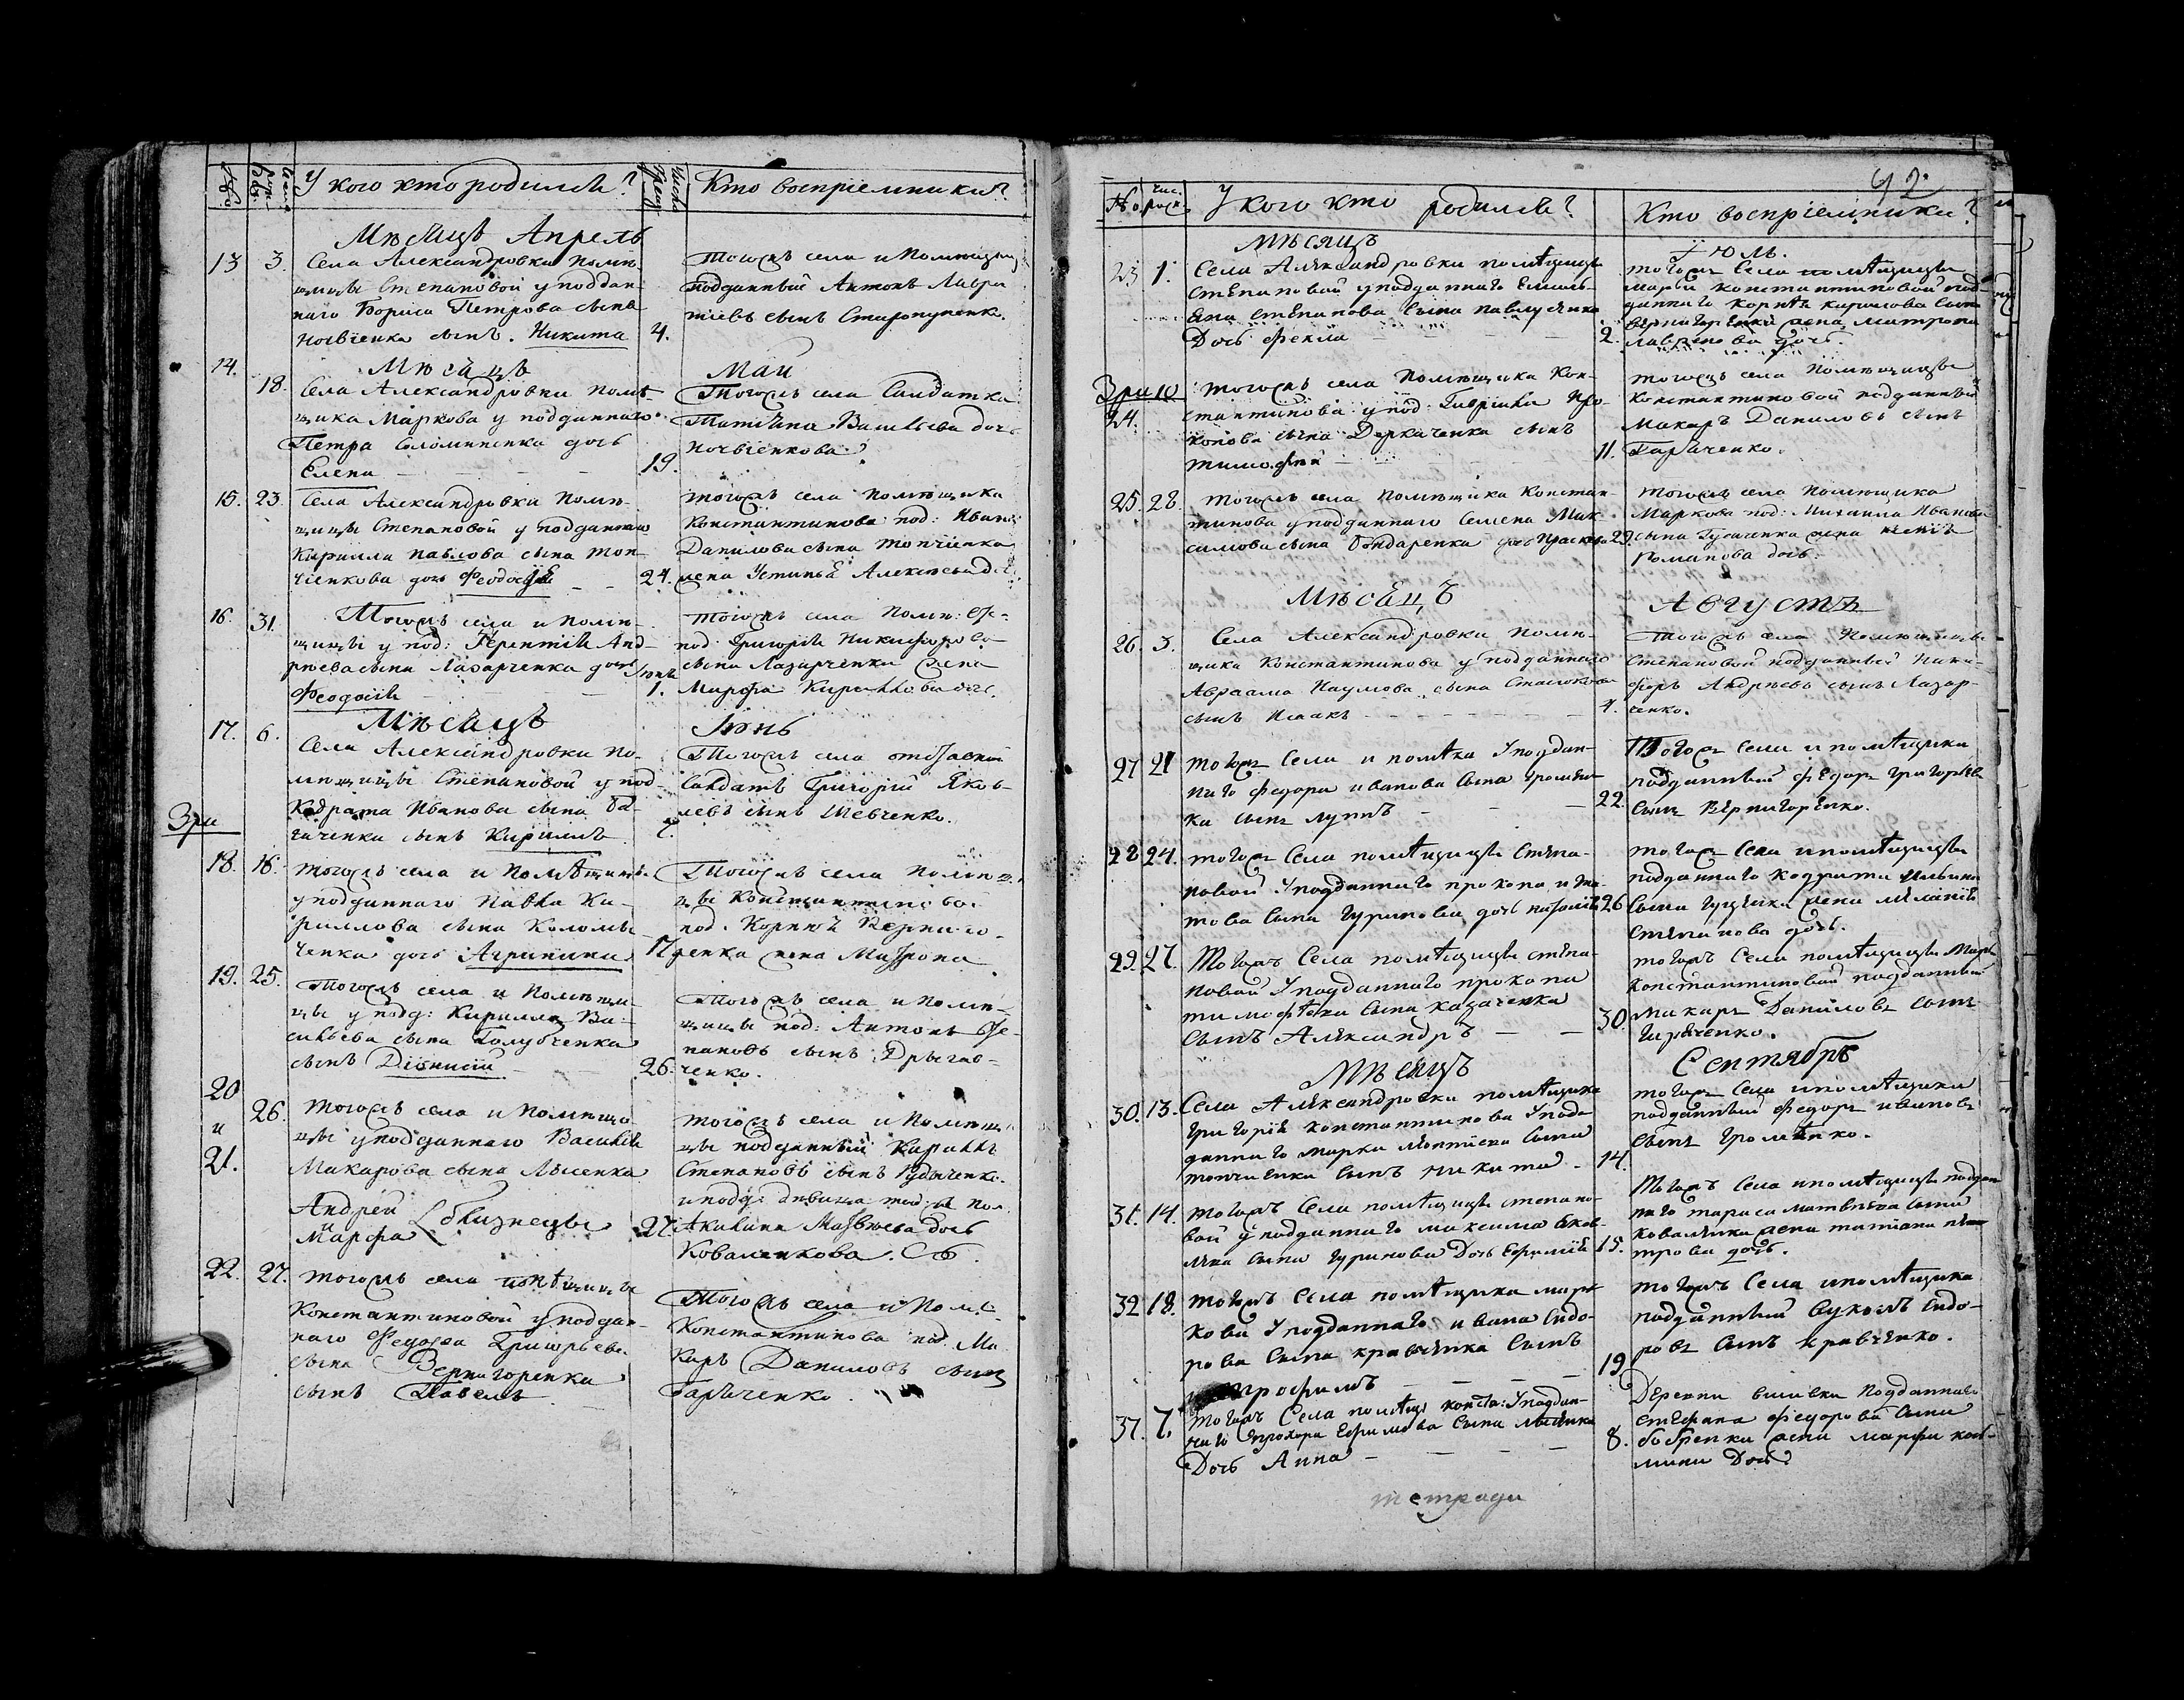 №
У кого кто родился?
Кто восприемники?
Мѣсяцъ Апрель
13 3. Села Александровки помѣ-
щицы Степановой у поддан-
наго Бориса Петрова сына
сынъ. Никита
4.
Тогожъ села и помѣщицы
подданный Антонъ Лавре
тіевъ сынъ
14. Мѣсяцъ
Май
18. Села Александровки помѣ-
щика Маркова у подданнаго
Петра Соломиненка дочь
Елена
19.
Тогожъ села Салдатка
Татіана Васильева дочь
15. 23. Села Александровки помѣ-
щицы Степановой у подданнаго
Кирилла Павлова сына Топ-
чіенкова дочь Феодосія
24.
тогожъ села помѣщика
Константинова под: Ивана
Данилова сына Топчіенка
жена Устинья Алексѣева до:
16. 31. Тогожъ села и помѣ-
щицы у под: Терентія Анд-
рѣева сына Лазарченка дочь
Феодосія
Іюня
1.
тогожъ села помѣ:
под: Григорія Никифорова
сына Лазарченка жена
Марфа Кириллова доч.
Мѣсяцъ
Іюнь
17. 6. Села Александровки по-
мѣщицы Степановой у под
Кодрата Иванова сына Га-
раченка сынъ Кириллъ
Тогожъ села отставной
Салдатъ Григорій Яков-
левъ сынъ Шевченко.
Зри
18. 16. тогожъ села и помѣщицы
у подданнаго Павла Ки-
риллова сына Коломы-
ченка дочь Агрипина
17.
Тогожъ села помѣщ
цы Константиново.
под. Корнія Верниго-
ренка жена Матрона
19. 25. тогожъ села и помѣщи-
цы у подд: Кирилла Ва-
сильева сына Голубченка
сынъ Діонисій
26.
тогожъ села и помѣ-
щицы под: Антонъ Сте-
пановъ сынъ
ченко.
20
и
21.
26. тогожъ села и помѣщи
цы у подданнаго Василія
Макарова сына Лысенка
Андрей
и
Марфа
близнецы
27.
тогожъ села и помѣщ
цы подданный Кириллъ
Степановъ сынъ Рудиченко.
и подд: дѣвица тод:
Акилина Матвѣева дочь
Коваленкова.
22. 27. тогожъ села помѣщицы
Константиновой у поддан-
наго Федора Григорьева
сына Вернигоренка
сынъ Павелъ
Тогожъ села и помѣ
Константинова под. Ма
каръ Даниловъ сынъ
Гараченко.
92
№ чис. рож.
У кого кто родился?
Кто восприемники?
Мѣсяцъ
Іюль.
23 1. Села Александровки помѣщицы
Степановой у подданнаго Емель-
яна Степанова сына Павлусенка
Дочь Фекла
2.
тогожъ села помѣщицы
Марьи Константиновой под-
даннаго Корнѣя Кирилова сына
Вернигоренка жена Матрона
дочь.
Зри 10
24. тогожъ села помѣщика Кон-
стантинова у под: Гавриила Про-
копова сына Деркаченка сынъ
Тимофей
11.
тогожъ села помѣщицы
Константиновой подданный
Макаръ Даниловъ сынъ
Гараченко.
25. 28. тогожъ села помѣщика Констан-
тинова у подданнаго Семена Мак-
симова сына Бондаренка дочь Праскева
29.
тогожъ села помѣщика
Маркова под: Михаила Иванова
сына Гусаченка жена
Романова дочь.
Мѣсяцъ
Августъ
26. 3. Села Александровки помѣ-
щика Константинова у подданнаго
Авраама Наумова сына
сынъ Исаакъ
4.
тогожъ села помѣщицы
Степановой подданный Ники-
форъ Андрѣевъ сынъ Лазар-
ченко.
27 21 тогожъ села и помѣщика у поддан-
наго Федора Иванова сына Громен-
ка сынъ Луппъ
22.
Тогожъ села и помѣщика
подданный Федоръ Григорьевъ
сынъ Вернигоренко.
28 24. тогожъ села помѣщицы Степа-
новой у подданнаго Прокопа Игна-
това сына Гуринова дочь Наталія
26
тогожъ села и помѣщицы
подданнаго Кодрата Ильина
сына жена Меланія
Степанова дочь.
29. 27. тогожъ села помѣщицы Степа-
новой у подданнаго Прокопа
Тимофѣева сына Казаченка
сынъ Александръ
30.
тогожъ села помѣщицы Марьи
Константиновой подданный
Макаръ Даниловъ сынъ
Гараченко.
Мѣсяцъ
Сентябрь
30. 13. Села Александровки помѣщика
Григорія Константинова у под-
даннаго Марка Леонтіева сына
Топчіенка сынъ Никита
14.
тогожъ села и помѣщика
подданный Федоръ Ивановъ
сынъ Громенко.
31. 14. тогожъ села помѣщицы Степано-
вой у подданнаго Максима Яков-
лева сына Гуринова дочь Ефимія
15.
тогожъ села и помѣщицы поддан
наго Тараса Матвѣева сына
Коваленка жена Татіана Пе-
трова дочь.
32 18. тогожъ села помѣщика Мар-
кова у подданнаго Ивана Сидо-
рова сына Кравченка сынъ
Трофимъ
19
тогожъ села и помѣщика
подданный Вуколъ Сидо-
ровъ сынъ Кравченко.
37. 7. тогожъ села помѣщ: конста: у поддан-
наго Прохора Ефимова сына Лысенка
Дочь Анна
8.
Деревни подданнаго
Стефана Федорова сына
Бобренка жена Марфа Кос-
мина дочь
тетради